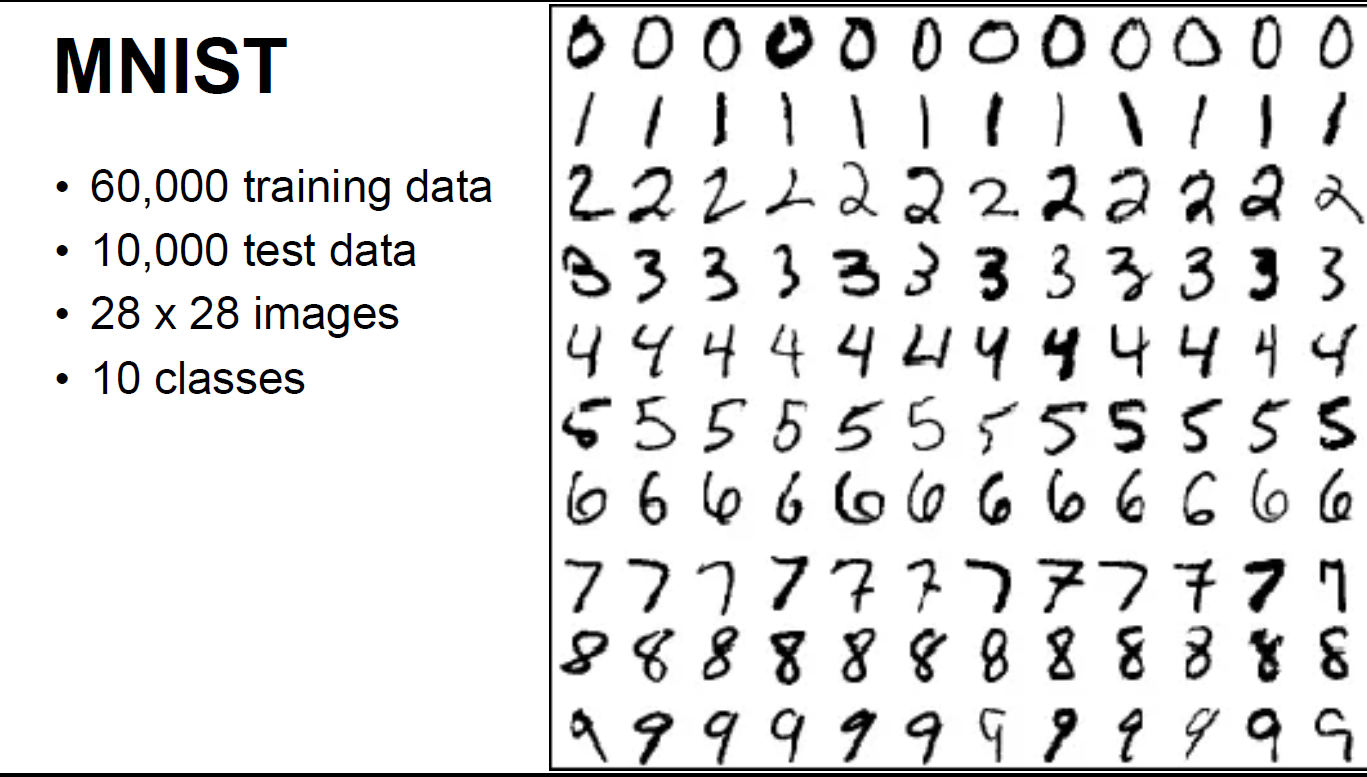 MNIST
• 60,000 training data
• 10,000 test data
• 28 x 28 images
• 10 classes
0 0 0 0 0 0 0 0 0 0 0 0
1 1 1 1 1 1 1 1 1 1 1 1
2 2 2 2 2 2 2 2 2 2 2 2
3 3 3 3 3 3 3 3 3 3 3 3
4 4 4 4 4 4 4 4 4 4 4 4
5 5 5 5 5 5 5 5 5 5 5 5
6 6 6 6 6 6 6 6 6 6 6 6
7 7 7 7 7 7 7 7 7 7 7 7
8 8 8 8 8 8 8 8 8 8 8 8
9 9 9 9 9 9 9 9 9 9 9 9